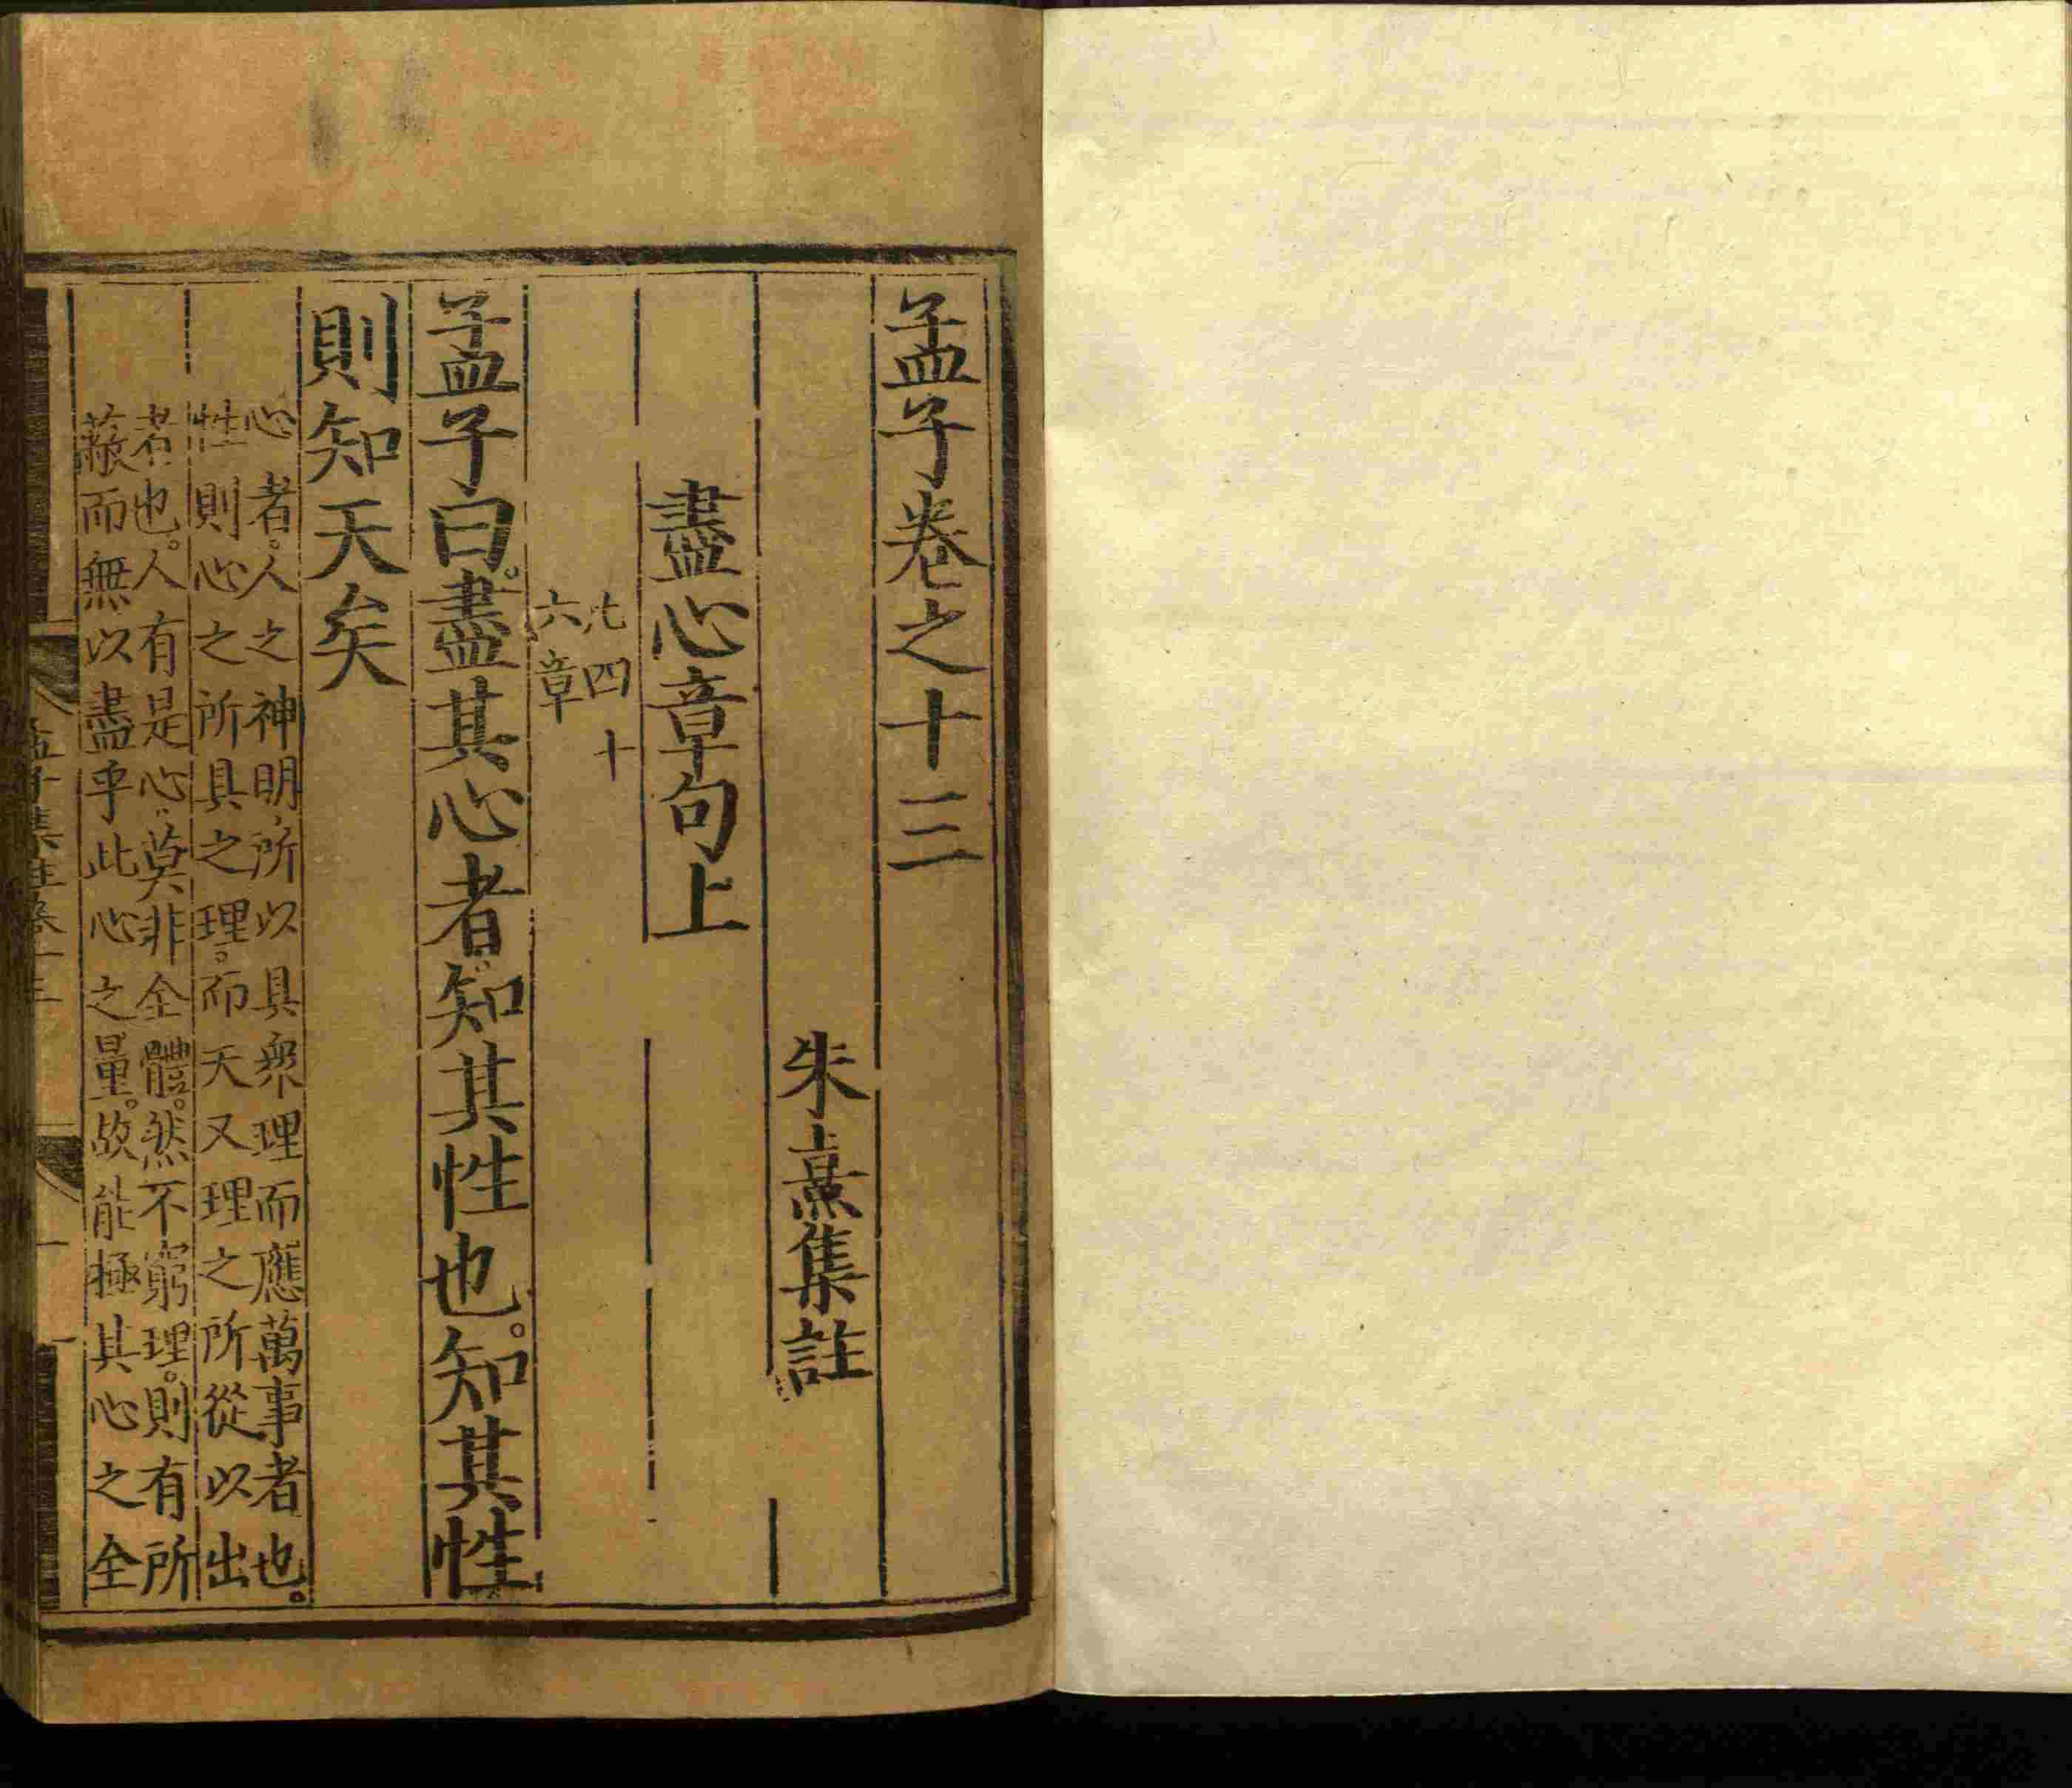 孟子卷之十三
朱熹集註
盡心章句上
凡四十
六章
孟子曰。盡其心者。知其性也。知其性
則知天矣
心者。人之神明。所以具衆理而應萬事者也。
性則心之所具之理。而天又理之所從以出
者也。人有是心。莫非全體。然不窮理。則有所
蔽而無以盡乎此心之量。故能極其心之全
孟子集註卷十三
一